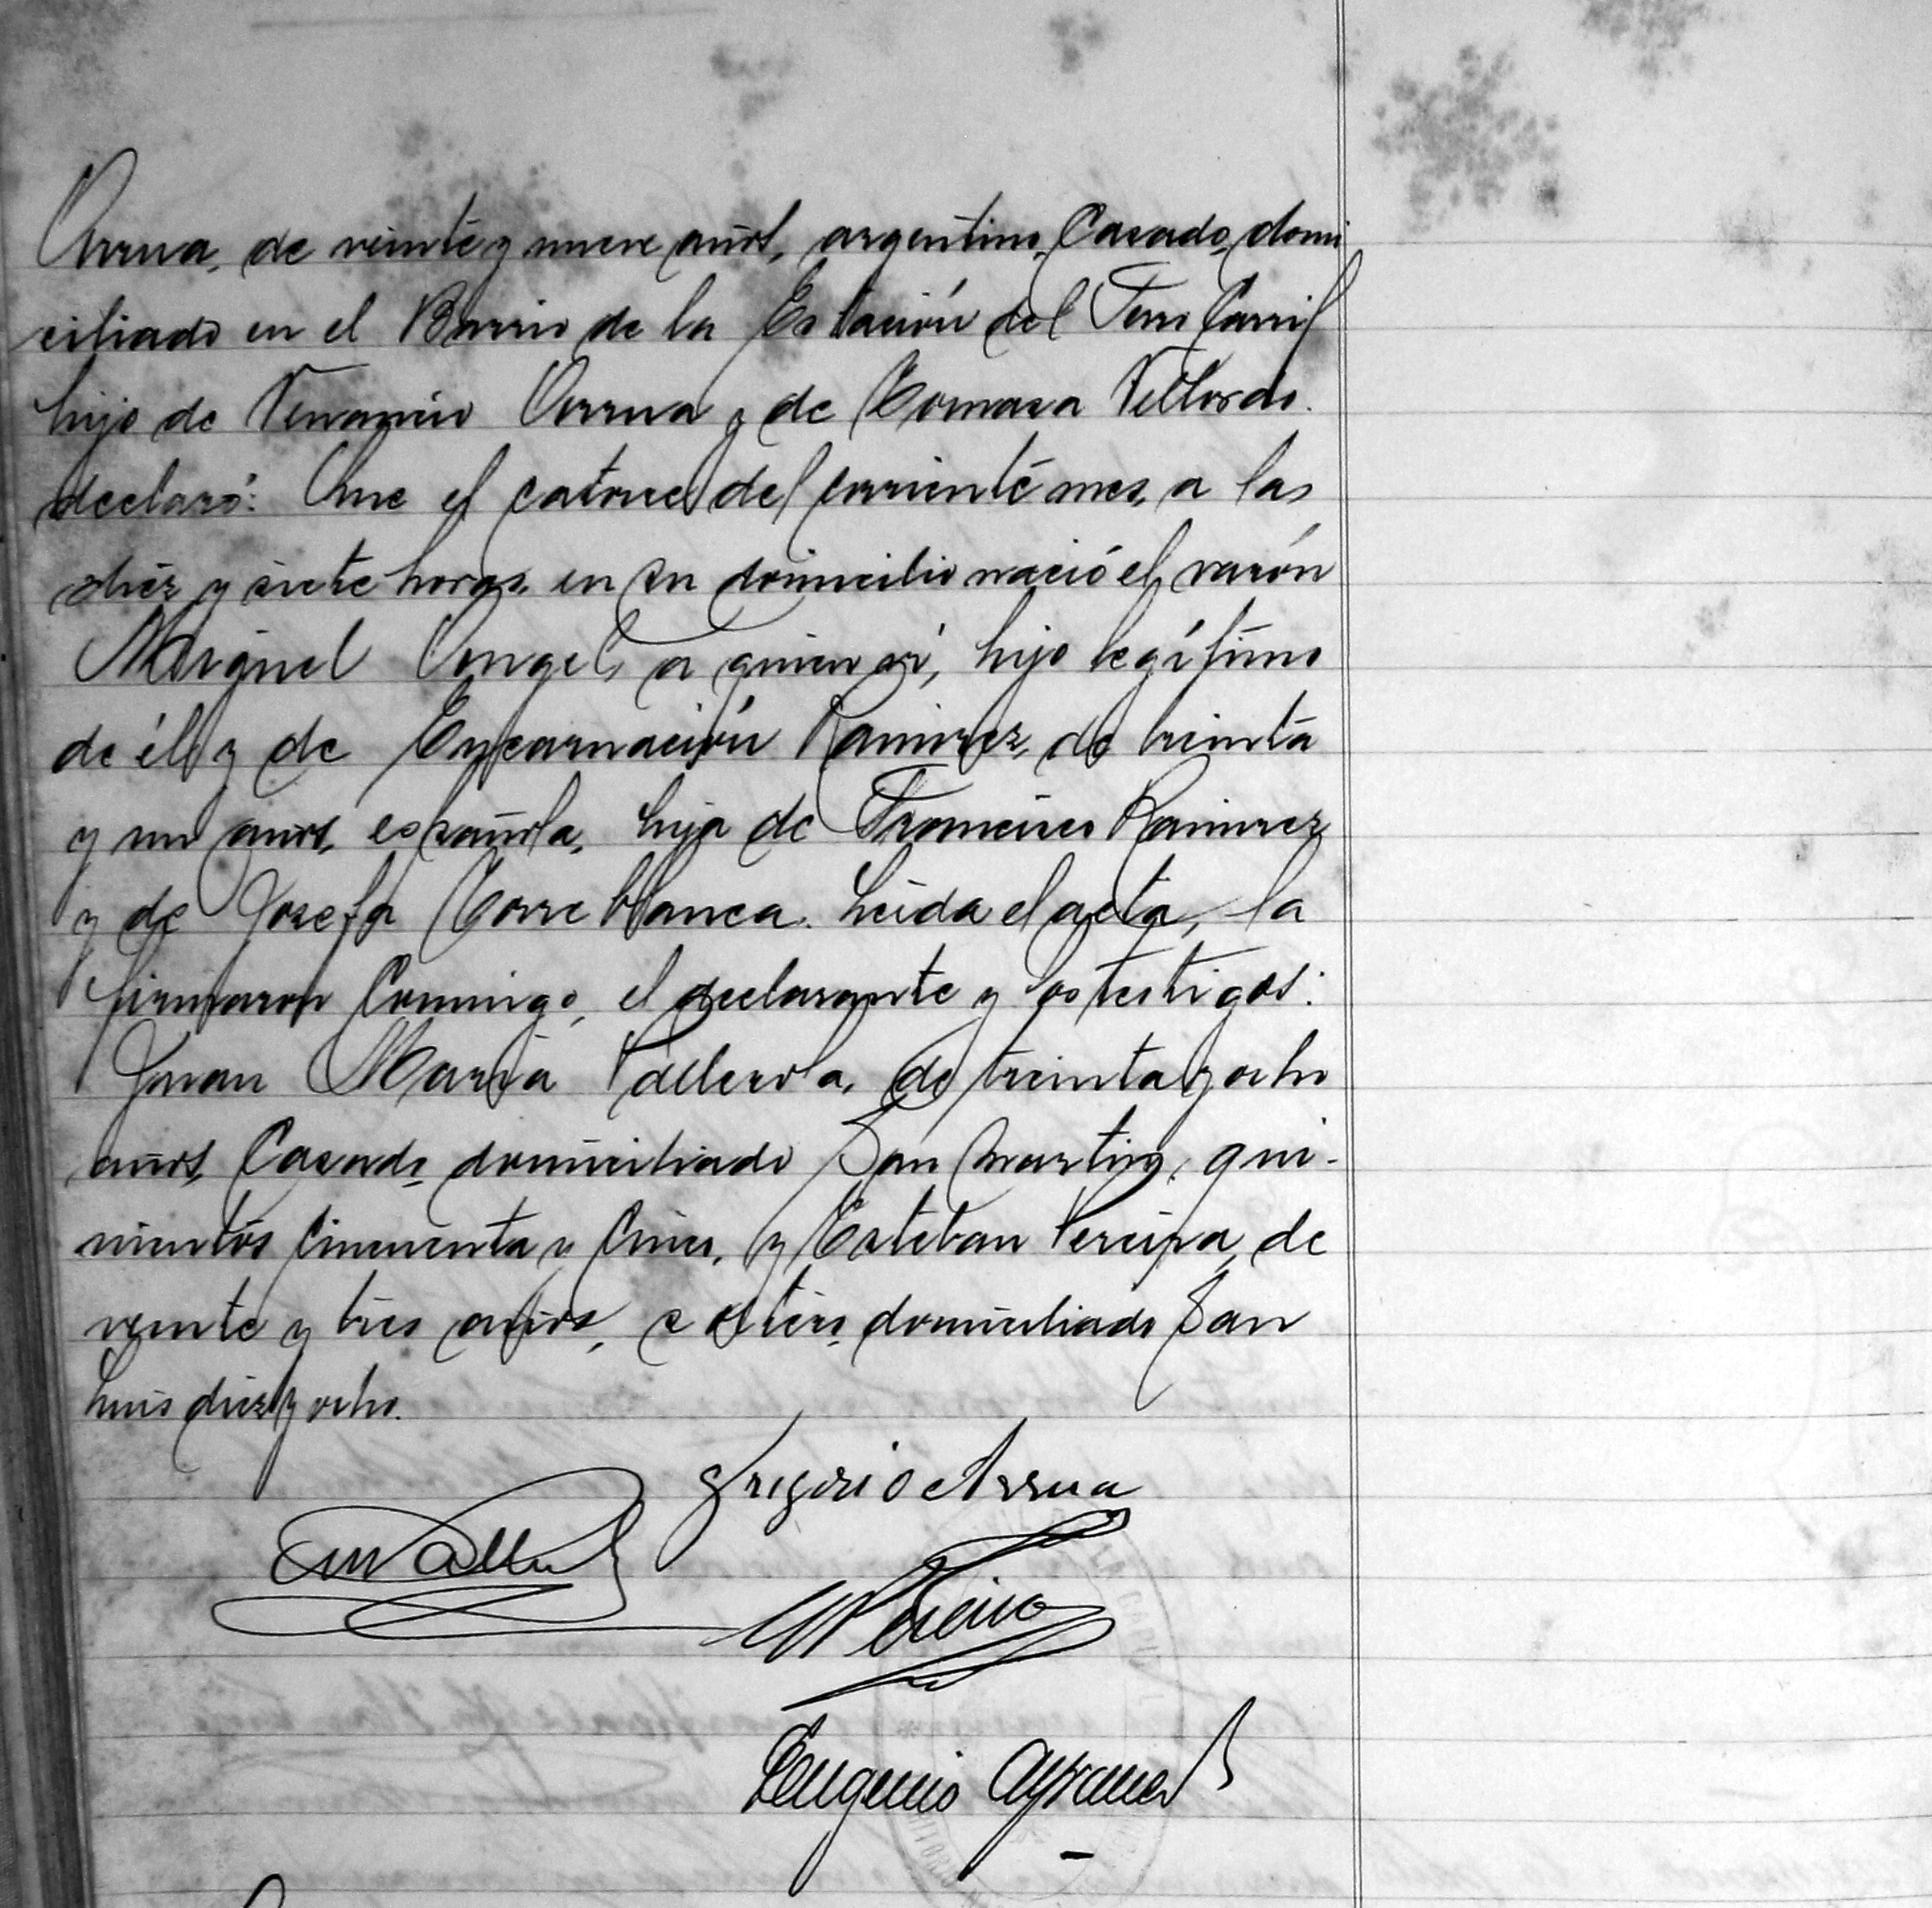 Arrua, de veinte y nueve años, argentino, Casado, domi
ciliado en el Barrio de la Estación del Ferro Carril
hijo de Venancio Arrua y de Tomasa Vellordo.
declaró: Que el catorce del corriente mes, a las
diez y siete horas, en su domicilio nació el varón
Miguel Angel, a quien ví, hijo legítimo
de él y de Encarnación Ramirez, de treinta
y un años, española, hija de Francisco Ramirez
y de Josefa Torreblanca. Leida el acta, la
firmaron Conmigo, el declarante y los testigos:
Juan María de treinta y ocho
años, Casado, domiciliado San Martin, qui-
nientos Cincuenta y Cinco, y Esteban Pereira, de
veinte y tres años, soltero, domiciliado San
Luis diez y ocho.
Gregorio Arrua
Eugenio